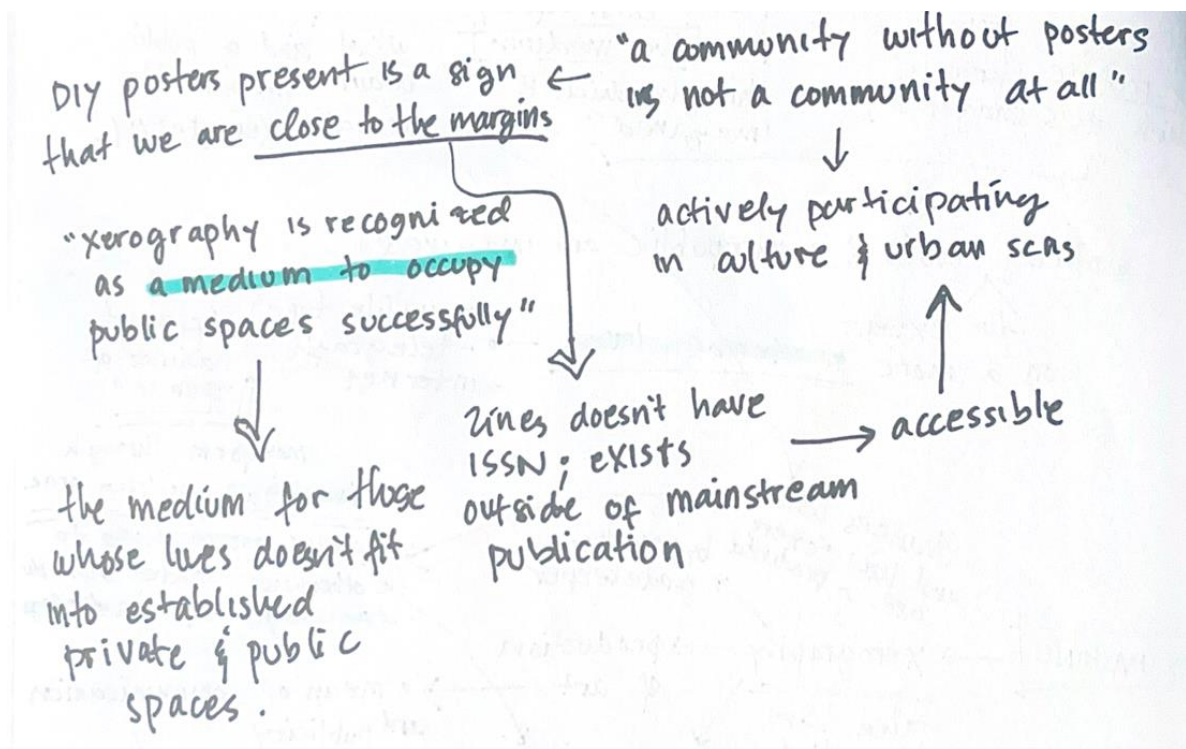 DIY posters present is a sign
that we are close to the margins
"a community without posters
is not a community at all"
actively participating
in culture & urban scas
"xerography is recognized
as a medium to occupy
public spaces successfully"
the medium for those
whose lives doesn't fit
into established
private & public
spaces.
zines doesn't have
ISSN; exists
outside of mainstream
publication
accessible